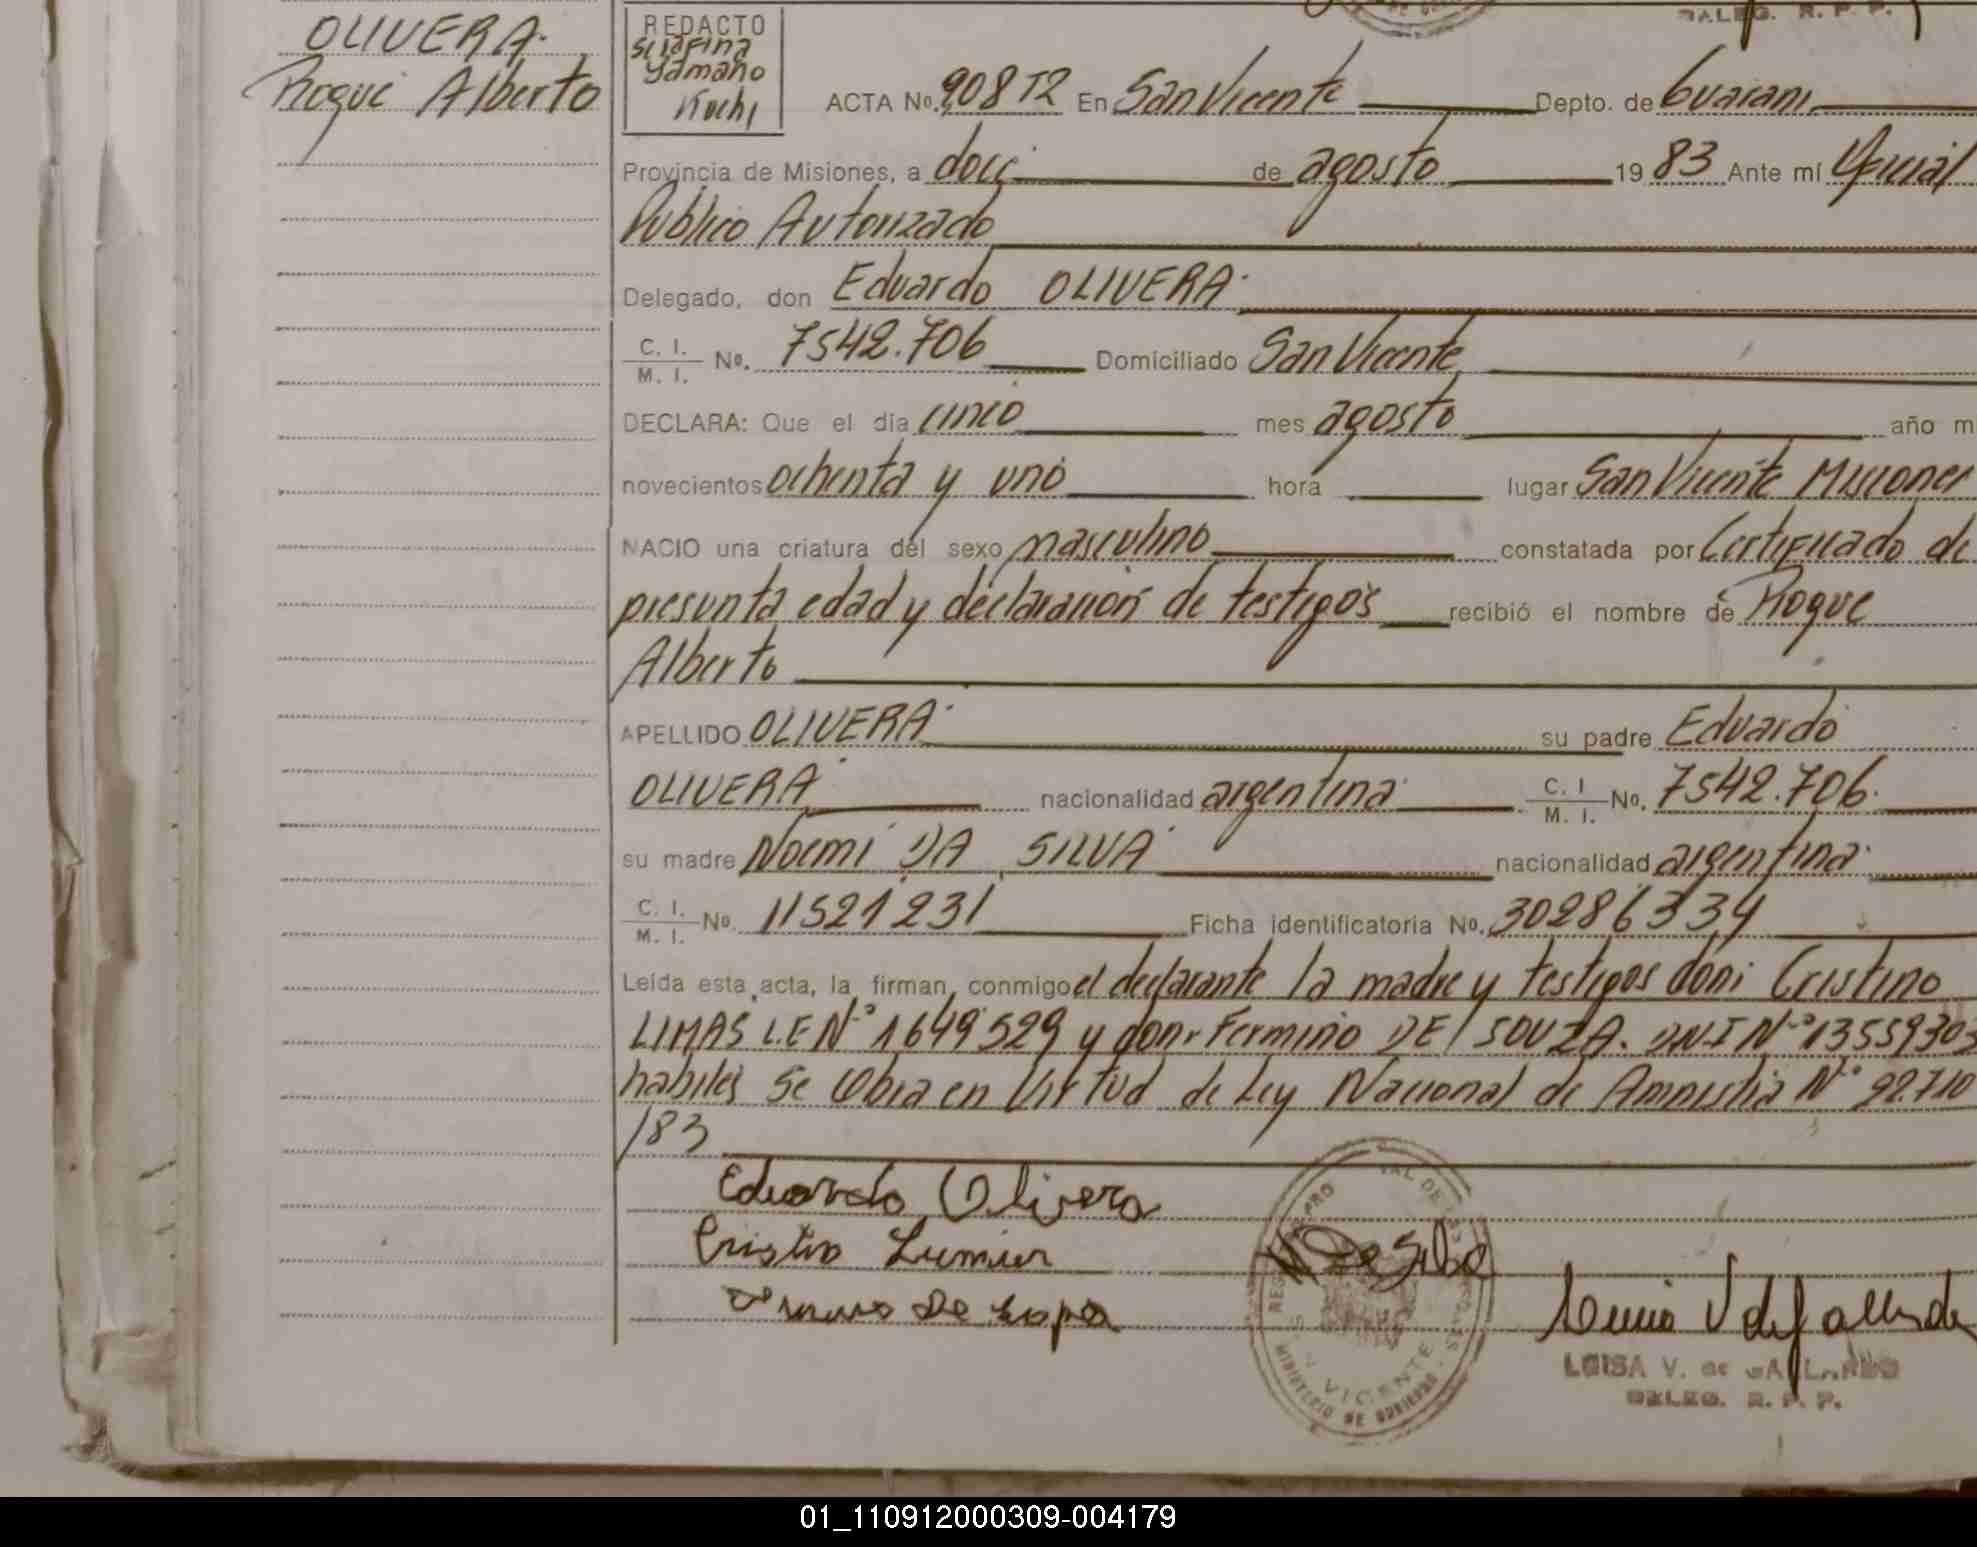 OLIVERA.
Roque Alberto
REDACTO
Serafina
Yamaho
Kochi
DALEG. R. P. P.
ACTA No. 908 T2 En San Vicente Depto. de Guarani
Provincia de Misiones, a doce de agosto 19 83 Ante mí Oficial
Publico Autorizado
Delegado, don Eduardo OLIVERA.
C. I. / M. I. No. 7542.706 Domiciliado San Vicente
DECLARA: Que el día cinco mes agosto año m
novecientos ochenta y uno hora lugar San Vicente Misiones
NACIO una criatura del sexo masculino constatada por Certificado de
presunta edad y declaracion de testigos recibió el nombre de Roque
Alberto
APELLIDO OLIVERA su padre Eduardo
OLIVERA nacionalidad argentina C. I / M. I. No. 7542.706.
su madre Noemi DA SILVA nacionalidad argentina
C. I. / M. I. No. 11521231 Ficha identificatoria No. 30286334
Leída esta acta, la firman conmigo el declarante la madre y testigos don: Cristino
LIMAS L.E N° 1649529 y don: Fermino DE SOUZA. DNI N° 13559303
habiles Se Obra en Virtud de Ley Nacional de Amnistia N° 22.710
/83
Eduardo Olivera
N Da Silva
VICENTE
MINISTERIO DE GOBIERNO
LUISA V. de GALLARDO
DELEG. R. P. P.
01_110912000309-004179